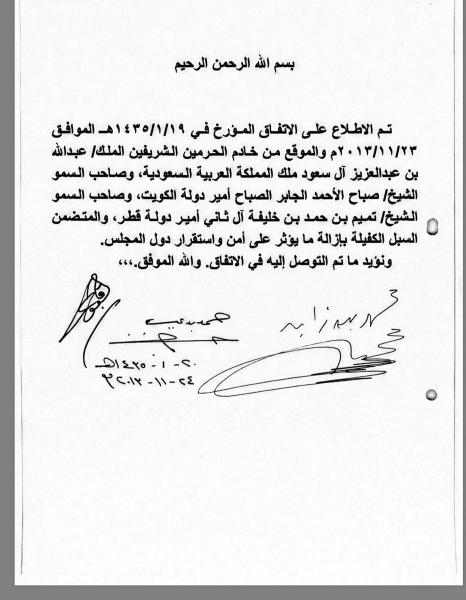 بسم الله الرحمن الرحيم
تم الاطلاع على الاتفاق المؤرخ في ١٤٣٥/١/١٩هـ الموافق
٢٠١٣/١١/٢٣م والموقع من خادم الحرمين الشريفين الملك/ عبدالله
بن عبدالعزيز آل سعود ملك المملكة العربية السعودية، وصاحب السمو
الشيخ/ صباح الأحمد الجابر الصباح أمير دولة الكويت، وصاحب السمو
الشيخ/ تميم بن حمد بن خليفة آل ثاني أمير دولة قطر، والمتضمن
السبل الكفيلة بإزالة ما يؤثر على أمن واستقرار دول المجلس.
ونؤيد ما تم التوصل إليه في الاتفاق. والله الموفق،،،
حمد بن عيسى
محمد بن زايد
٢٠-١-١٤٣٥هـ
٢٤-١١-٢٠١٣م